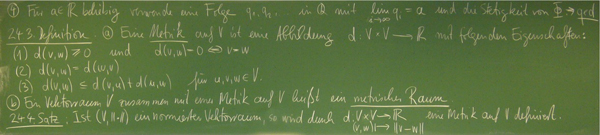 ① Für a∈ℝ beliebig verwende eine Folge q₀,q₁,.. in ℚ mit lim qᵢ = a und die Stetigkeit von Φ → qed
i→∞
2.4.3. Definition: ⓐ Eine Metrik auf V ist eine Abbildung d: V×V → ℝ mit folgenden Eigenschaften:
(1) d(v,w) ≥ 0 und d(v,w)=0 ⇔ v=w
(2) d(v,w) = d(w,v)
(3) d(v,w) ≤ d(v,u)+d(u,w) für u,v,w∈V.
ⓑ Ein Vektorraum V zusammen mit einer Metrik auf V heißt ein metrischer Raum.
2.4.4. Satz: Ist (V,‖·‖) ein normierter Vektorraum, so wird durch d: V×V → ℝ eine Metrik auf V definiert.
(v,w) ↦ ‖v−w‖